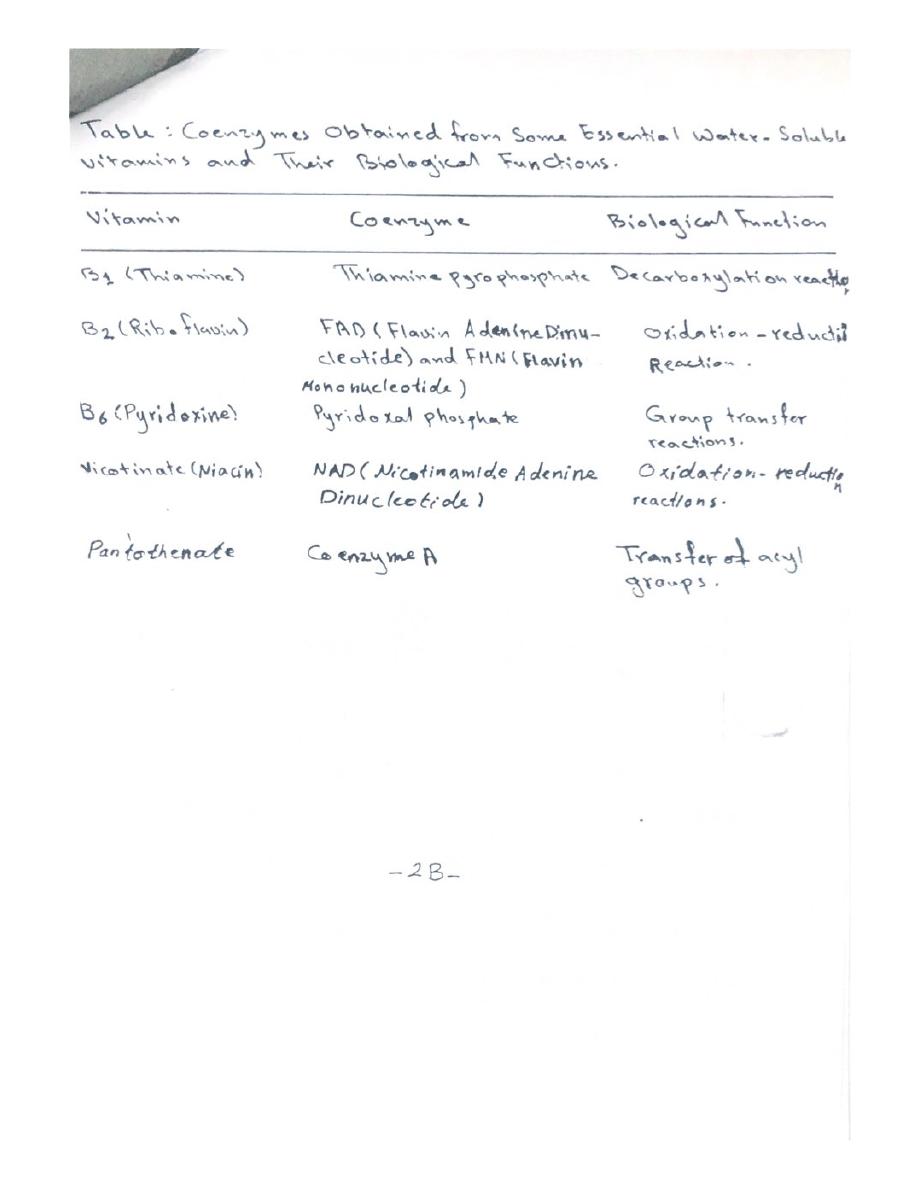 Table : Coenzymes Obtained from Some Essential Water-Soluble
vitamins and Their Biological Functions.
Vitamin Coenzyme Biological Function
B1 (Thiamine) Thiamine pyrophosphate Decarboxylation reaction
B2 (Riboflavin) FAD (Flavin Adenine Dinu- Oxidation-reducti
cleotide) and FMN (Flavin Reaction.
Mononucleotide)
B6 (Pyridoxine) Pyridoxal phosphate Group transfer
reactions.
Nicotinate (Niacin) NAD (Nicotinamide Adenine Oxidation-reduction
Dinucleotide) reactions.
Pantothenate Coenzyme A Transfer of acyl
groups.
-2B-